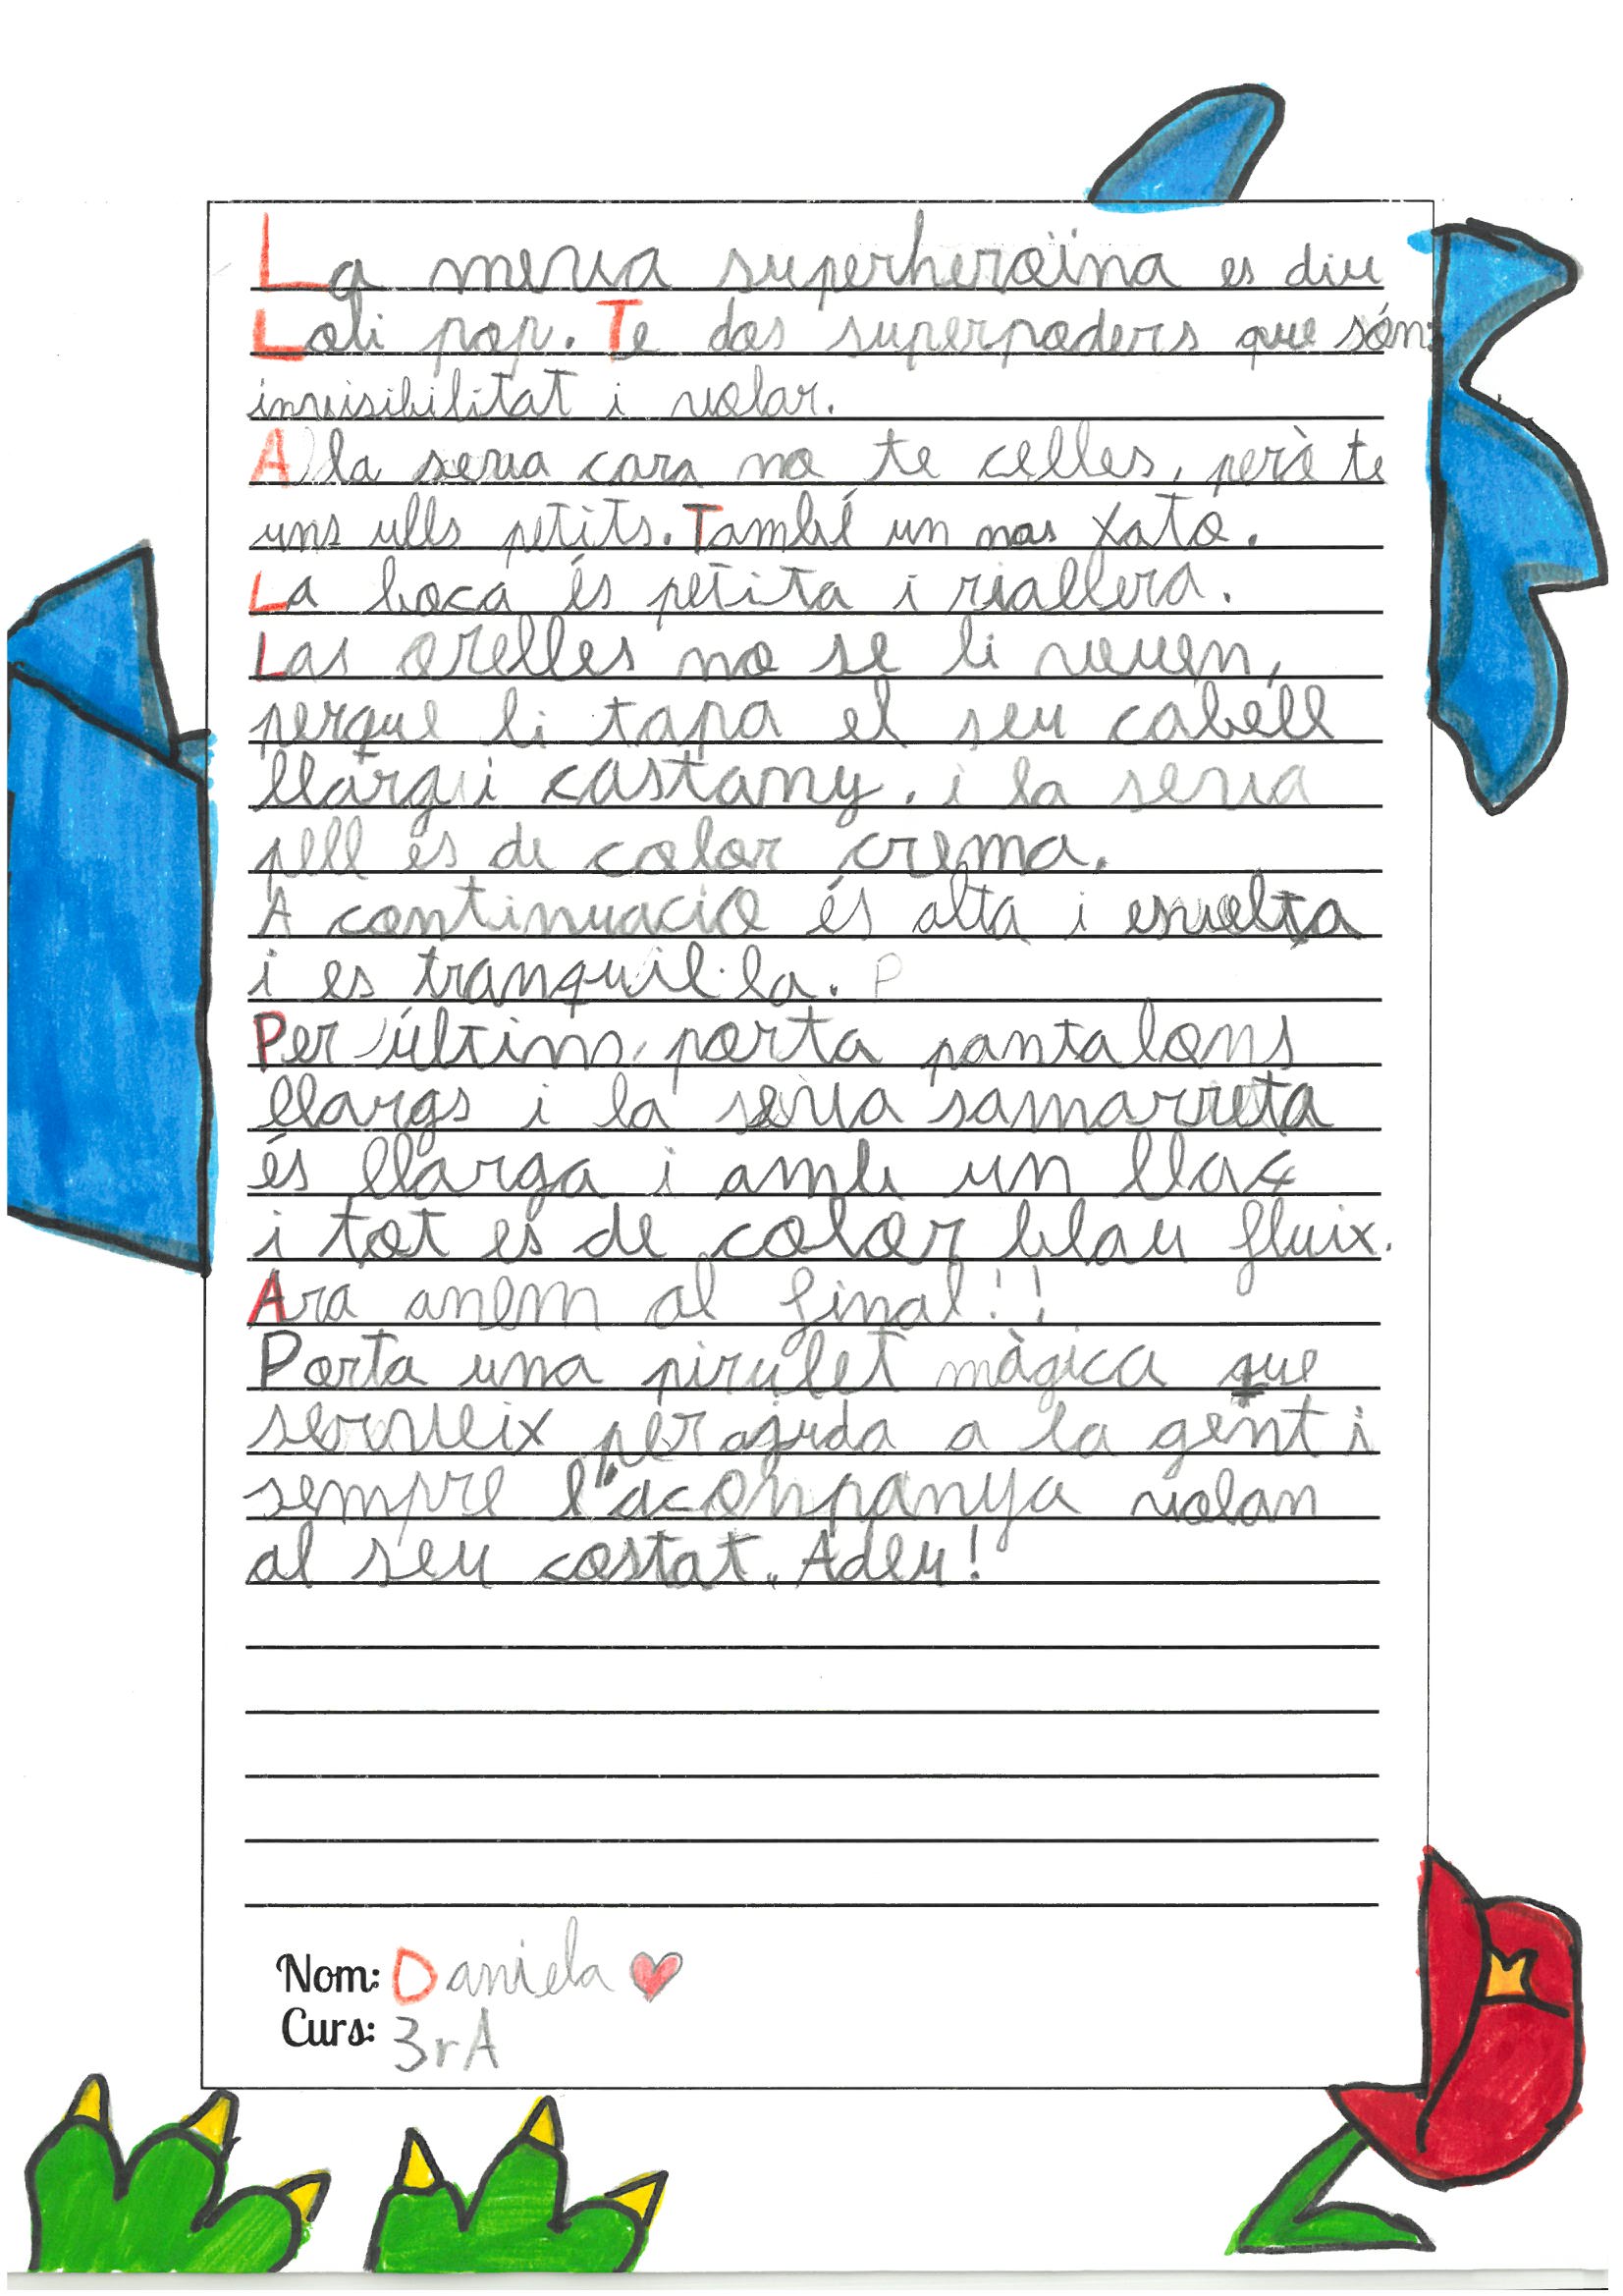 La meva superheroïna es diu
Loli pop. Te dos superpoders que són:
invisibilitat i volar.
A la seva cara no te celles, però te
uns ulls petits. També un nas xato.
La boca és petita i riallera.
Las orelles no se li veuen,
perque li tapa el seu cabell
llarg i castany. i la seva
pell es de color crema.
A continuacio és alta i esvelta
i es tranquil·la. P
Per últim, porta pantalons
llargs i la seva samarreta
és llarga i amb un llaç
i tot es de color blau fluix.
Ara anem al final!!
Porta una pirulet màgica que
serveix per ajuda a la gent i
sempre l'acompanya volan
al seu costat. Adeu!
Nom: Daniela
Curs: 3rA